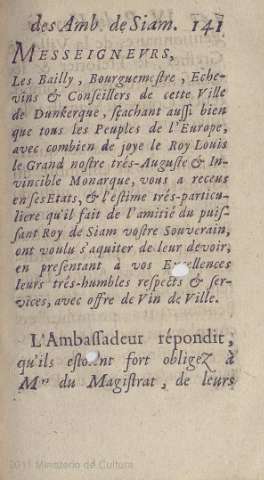 des Amb. de Siam. 141
MESSEIGNEVRS,
Les Bailly, Bourguemestre, Eche-
vins & Conseillers de cette Ville
de Dunkerque, sçachant aussi bien
que tous les Peuples de l'Europe,
avec combien de joye le Roy Louis
le Grand nostre trés-Auguste & In-
vincible Monarque, vous a receus
en ses Etats, & l'estime trés-particu-
liere qu'il fait de l'amitié du puis-
sant Roy de Siam vostre Souverain,
ont voulu s'aquiter de leur devoir,
en presentant à vos Excellences
leurs trés-humbles respects & ser-
vices, avec offre de Vin de Ville.
L'Ambassadeur répondit,
qu'ils estoient fort obligez à
Mrs du Magistrat, de leurs
2011 Ministerio de Cultura